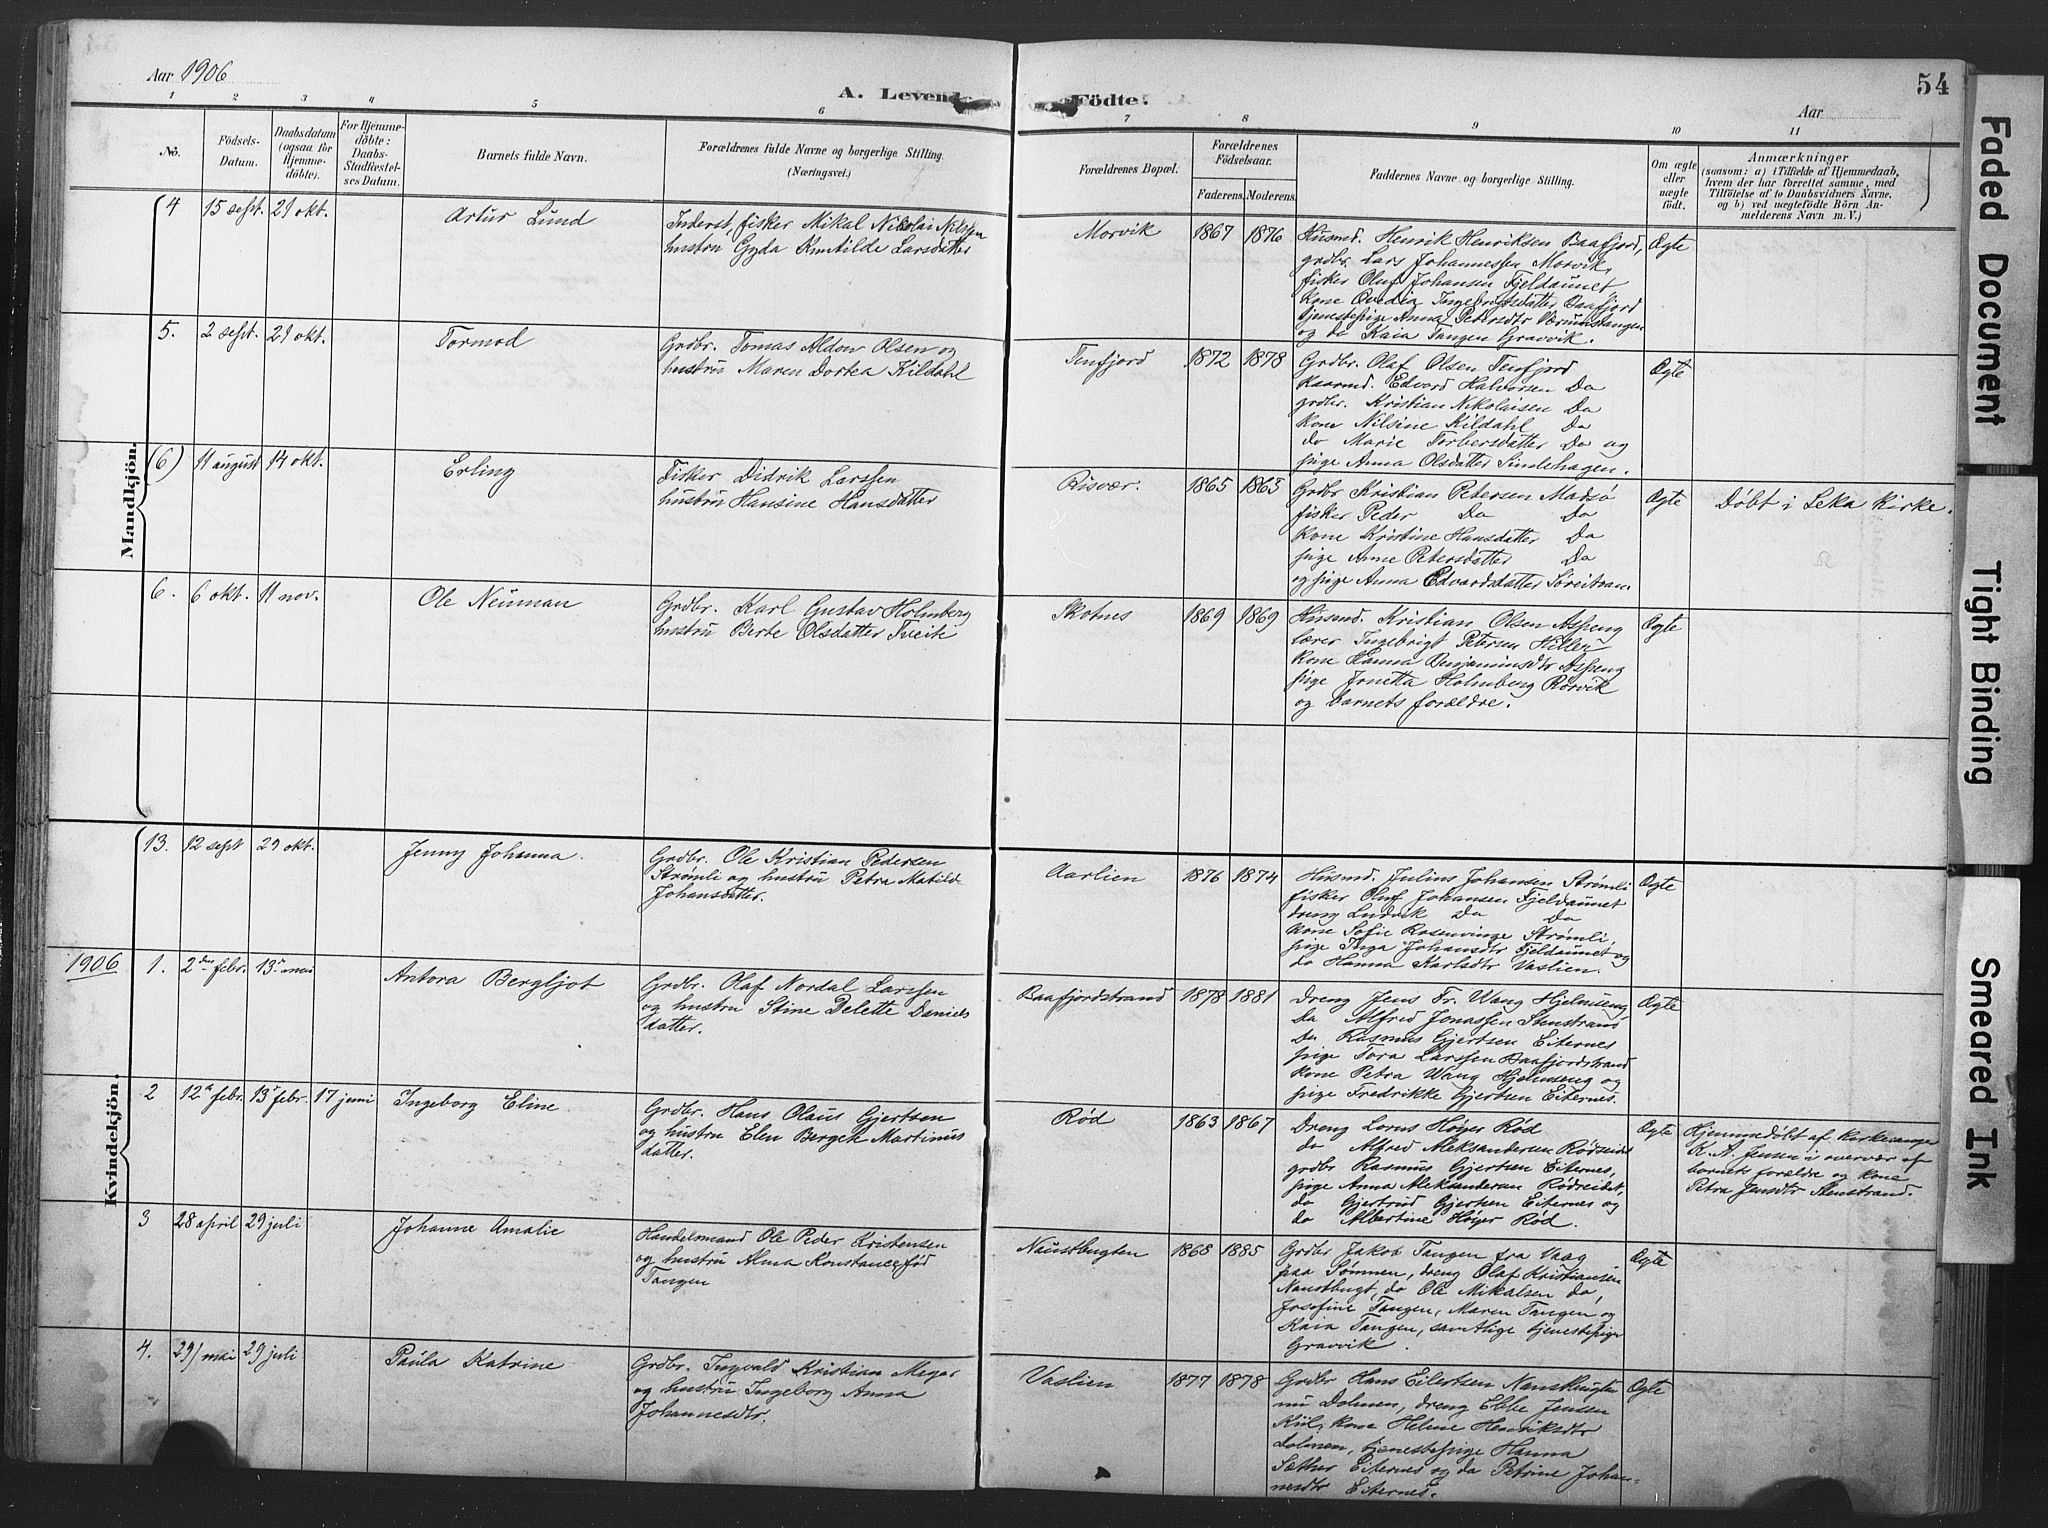 Aar 1906
54
A. Levende Födte.
Aar
1 2 3 4 5 6 7 8 9 10 11
No.
Födsels-Datum.
Daabsdatum (ogsaa for Hjemmedöbte).
For Hjemmedöbte: Daabs-Stadfæstelses Datum.
Barnets fulde Navn.
Forældrenes fulde Navne og borgerlige Stilling.
(Næringsvei.)
Forældrenes Bopæl.
Forældrenes Födselsaar.
Faderens. Moderens.
Faddernes Navne og borgerlige Stilling.
Om ægte eller uægte födt.
Anmærkninger
(saasom: a) i Tilfælde af Hjemmedaab,
hvem der har forrettet samme, med
Tilföielse af to Daabsvidners Navne,
og b) ved uægtefödte Börn Anmelderens Navn m. V.)
Mandkjön.
4 15 sept. 21 okt. Artur Lund
Inderst, fisker Mikal Nikolai Nilssen
hustru Gyda Kmtilde Larsdatter
Morvik 1867 1876
Husmd. Henrik Henriksen Baafjord,
grdbr. Lars Johannessen Morvik,
fisker Oluf Johansen Fjeldaunet
Kone Ovedia Ingebrigtsdatter Baafjord
tjenestepige Anna Petersdtr Værumstangen
og do Kaia Tangen Gravvik.
Ægte
5. 2 sept. 21 okt. Tormod
Grdbr. Tomas Aldon Olsen og
hustru Maren Dortea Kildahl
Tenfjord 1872 1878
Grdbr. Olaf Olsen Tenfjord
Kaarmd. Edvard Halvorsen Do
grdbr. Kristian Nikolaisen Do
Kone Nilsine Kildahl Do
do Marie Torbersdatter Do og
pige Anna Olsdatter Sindehagen.
Ægte
(6) 11 august 14 okt. Erling
Fisker Didrik Larssen
hustru Hansine Hansdatter
Risvær. 1865 1863
Grdbr Kristian Petersen Madsø
fisker Peder Do Do
Kone Kristine Hansdatter Do
pige Anne Petersdatter Do
og pige Anna Edvardsdatter Søreitran.
Ægte
Døbt i Leka Kirke.
6. 6 okt. 11 nov. Ole Neuman
Grdbr. Karl Gustav Holmberg
hustru Berte Olsdatter Tveiti
Skotnes 1869 1869
Husmd. Kristian Olsen Aspeng
lærer Ingebrigt Petersen Hiller
Kone Hanna Benjaminsdtr Aspeng
pige Jonetta Holmberg Rörvik
og barnets forældre.
Ægte
Kvindekjön.
13. 12 sept 29 okt. Jenny Johanna.
Grdbr. Ole Kristian Pedersen
Strømli og hustru Petra Matilde
Johansdatter.
Aarlien 1876 1874
Husmd. Julius Johansen Strømli
fisker Oluf Johansen Fjeldaunet
dreng Ludvik Do Do
Kone Sofie Rosenvinge Strømli
pige Inga Johansdtr Fjeldaunet og
do Hanna Karlsdtr Vaslien.
Ægte
1906
1. 2den febr. 13de mai Antora Bergljot
Grdbr. Olaf Nordal Larssen
og hustru Stine Delette Daniels
datter.
Baafjordstrand 1878 1881
Dreng Jens Fr. Wang Hjelmseng
Do Alfred Jonassen Stenstrand
Do Rasmus Gjertsen Eiternes
pige Tora Larssen Baafjordstrand
Kone Petra Wang Hjelmseng og
pige Fredrikke Gjertsen Eiternes.
Ægte
2 12te febr. 13de febr. 17 juni Ingeborg Eline
Grdbr. Hans Olaus Gjertsen
og hustru Elen Bergete Martinus
datter.
Rød 1863 1867
Dreng Lorns Höyer Rød
do Alfred Aleksandersen Rødseidet
grdbr Rasmus Gjertsen Eiternes,
pige Anna Aleksandersen Rødseidet,
do Gjertrud Gjertsen Eiternes og
do Albertine Höyer Rød.
Ægte
Hjemmedøbt af kirkesanger
K. A. Jensen i overvær af
barnets forældre og kone
Petra Jensdtr Stenstrand.
3 28 april 29 juli Johanne Amalie
Handelsmand Ole Peder Kristensen
og hustru Alma Konstance, fød
Tangen
Naustbugten 1868 1885
Grdbr Jakob Tangen fra Vaag
paa Sømnen, dreng Olaf Kristiansen
Naustbugt, do Ole Mikalsen do,
Josefine Tangen, Maren Tangen og
Kaia Tangen, samtlige tjenestepiger
Gravvik.
Ægte
4. 29/ mai 29 juli Paula Katrine
Grdbr. Ingvald Kristian Megar
og hustru Ingeborg Anna
Johannesdtr.
Vaslien 1877 1878
Grdbr Hans Eilertsen Naustbugten
nu Dolmen, dreng Ebbe Jenssen
Kiil, Kone Helene Henriksdtr
Dolmen, tjenestepige Hanna
Sæther Eiternes og do Petrine Johan-
nesdtr Eiternes.
Ægte
Faded Document
Tight Binding
Smeared Ink